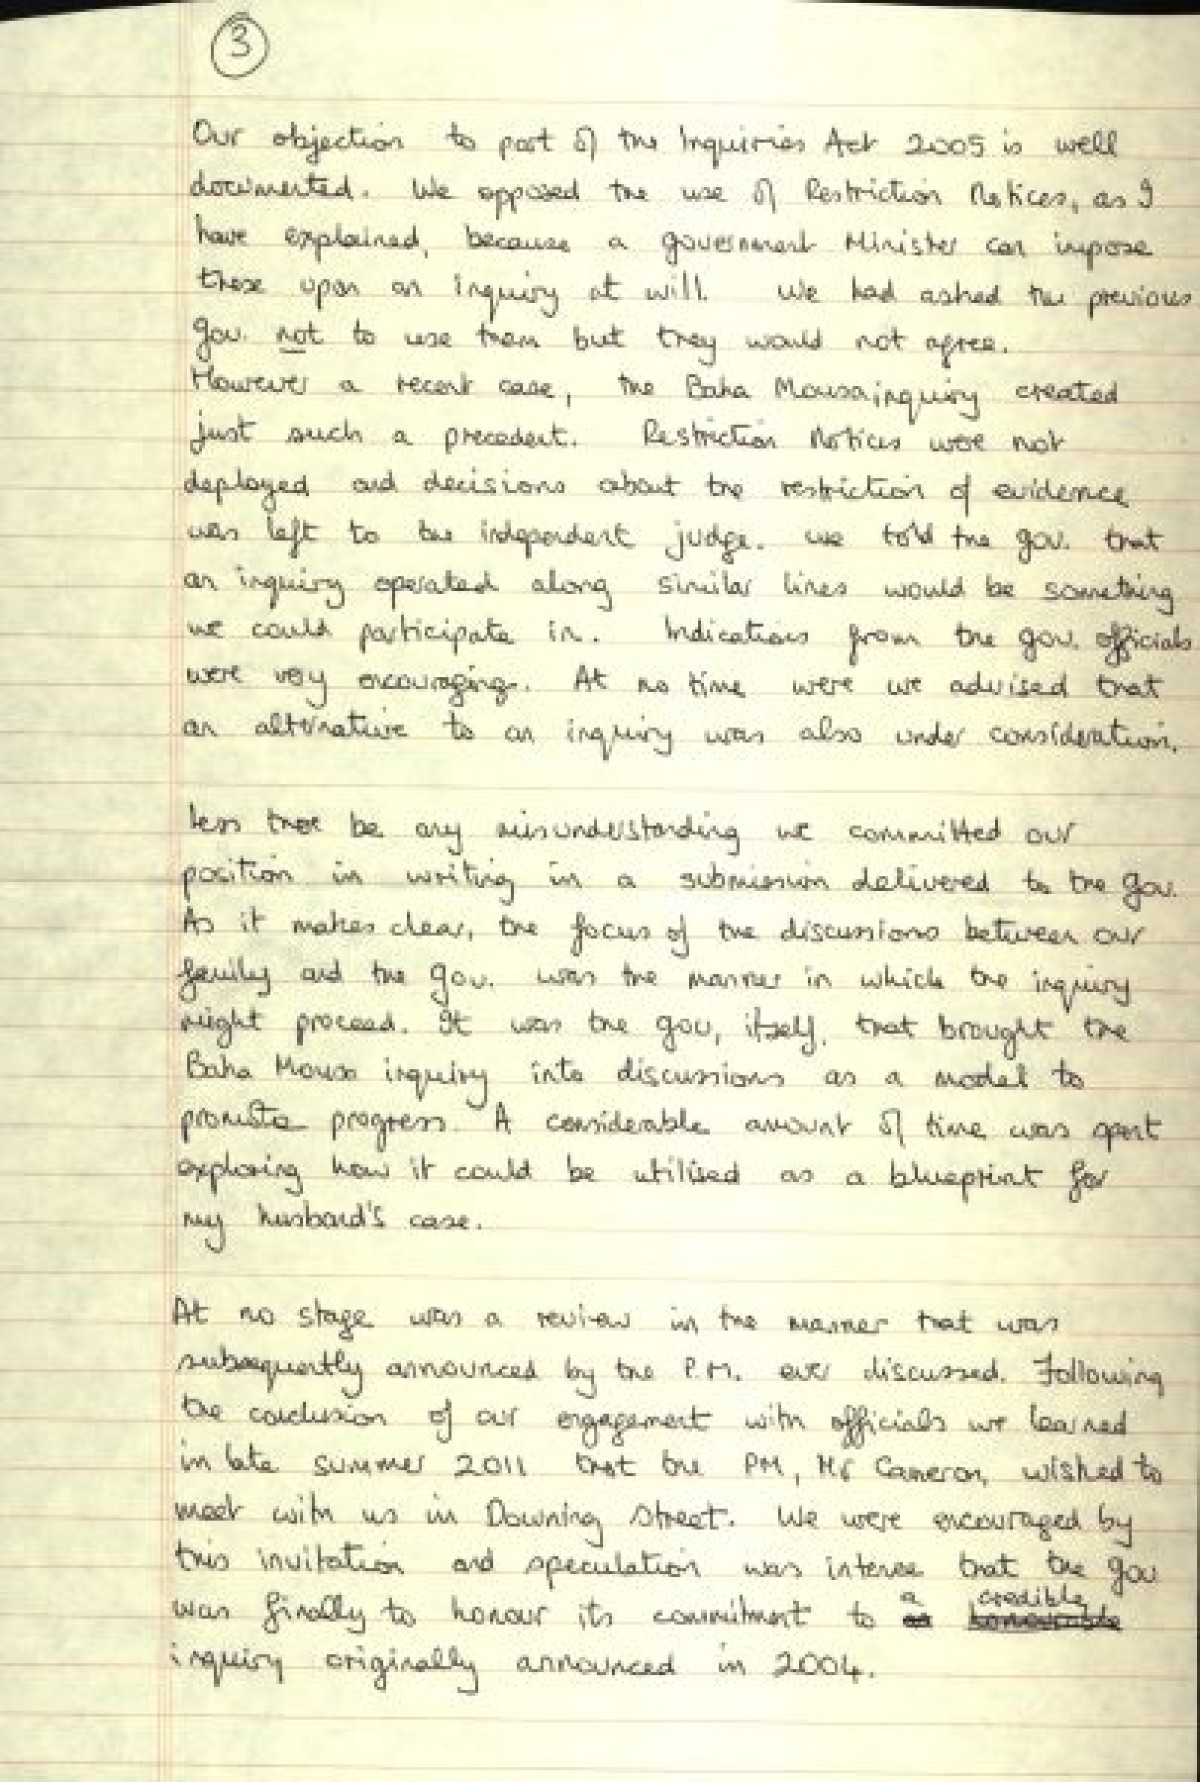 3
Our objection to part of the Inquiries Act 2005 is well
documented. We opposed the use of Restriction Notices, as I
have explained, because a government Minister can impose
these upon an inquiry at will. We had asked the previous
gov. not to use them but they would not agree.
However a recent case, the Baha Mousa inquiry created
just such a precedent. Restriction Notices were not
deployed and decisions about the restriction of evidence
was left to the independent judge. We told the gov. that
an inquiry operated along similar lines would be something
we could participate in. Indications from the gov. officials
were very encouraging. At no time were we advised that
an alternative to an inquiry was also under consideration.
Less there be any misunderstanding we committed our
position in writing in a submission delivered to the gov.
As it makes clear, the focus of the discussions between our
family and the gov. was the manner in which the inquiry
might proceed. It was the gov, itself, that brought the
Baha Mousa inquiry into discussions as a model to
promote progress. A considerable amount of time was spent
exploring how it could be utilised as a blueprint for
my husband's case.
At no stage was a review in the manner that was
subsequently announced by the P.M. ever discussed. Following
the conclusion of our engagement with officials we learned
in late summer 2011 that the PM, Mr Cameron, wished to
meet with us in Downing Street. We were encouraged by
this invitation and speculation was intense that the gov
was finally to honour its commitment to a credible
inquiry originally announced in 2004.